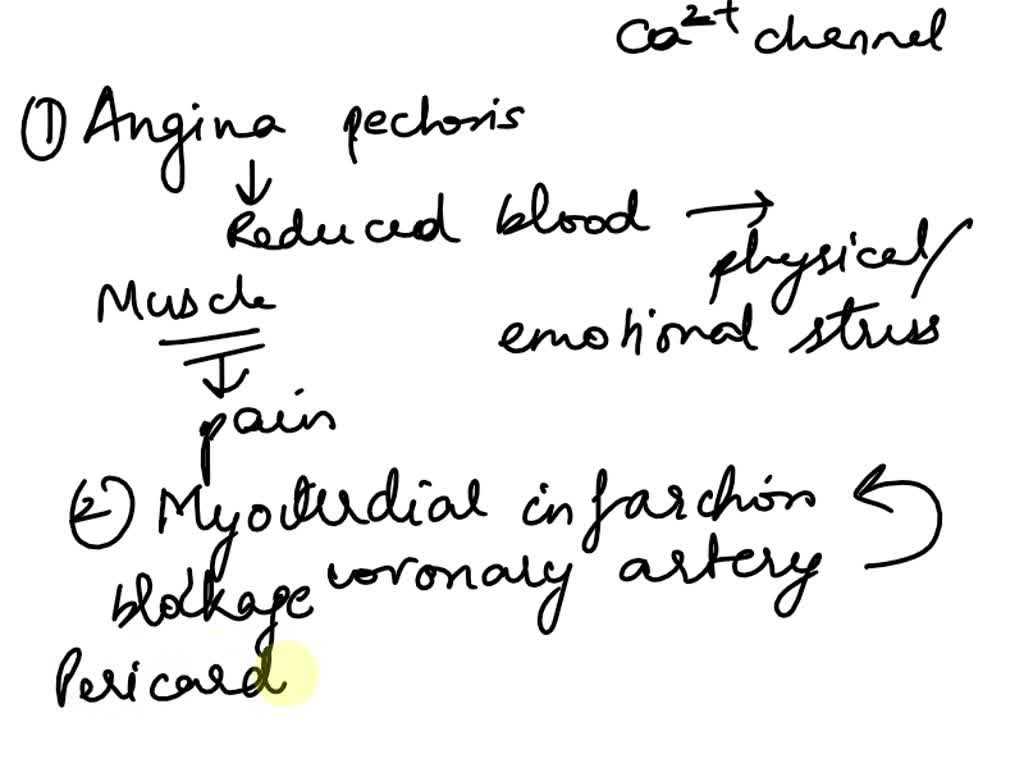 Ca²⁺ channel
① Angina pectoris
↓
Reduced blood →
physical/
Muscle
emotional stress
↓
pain
② Myocardial infarction
blockage coronary artery
Pericard